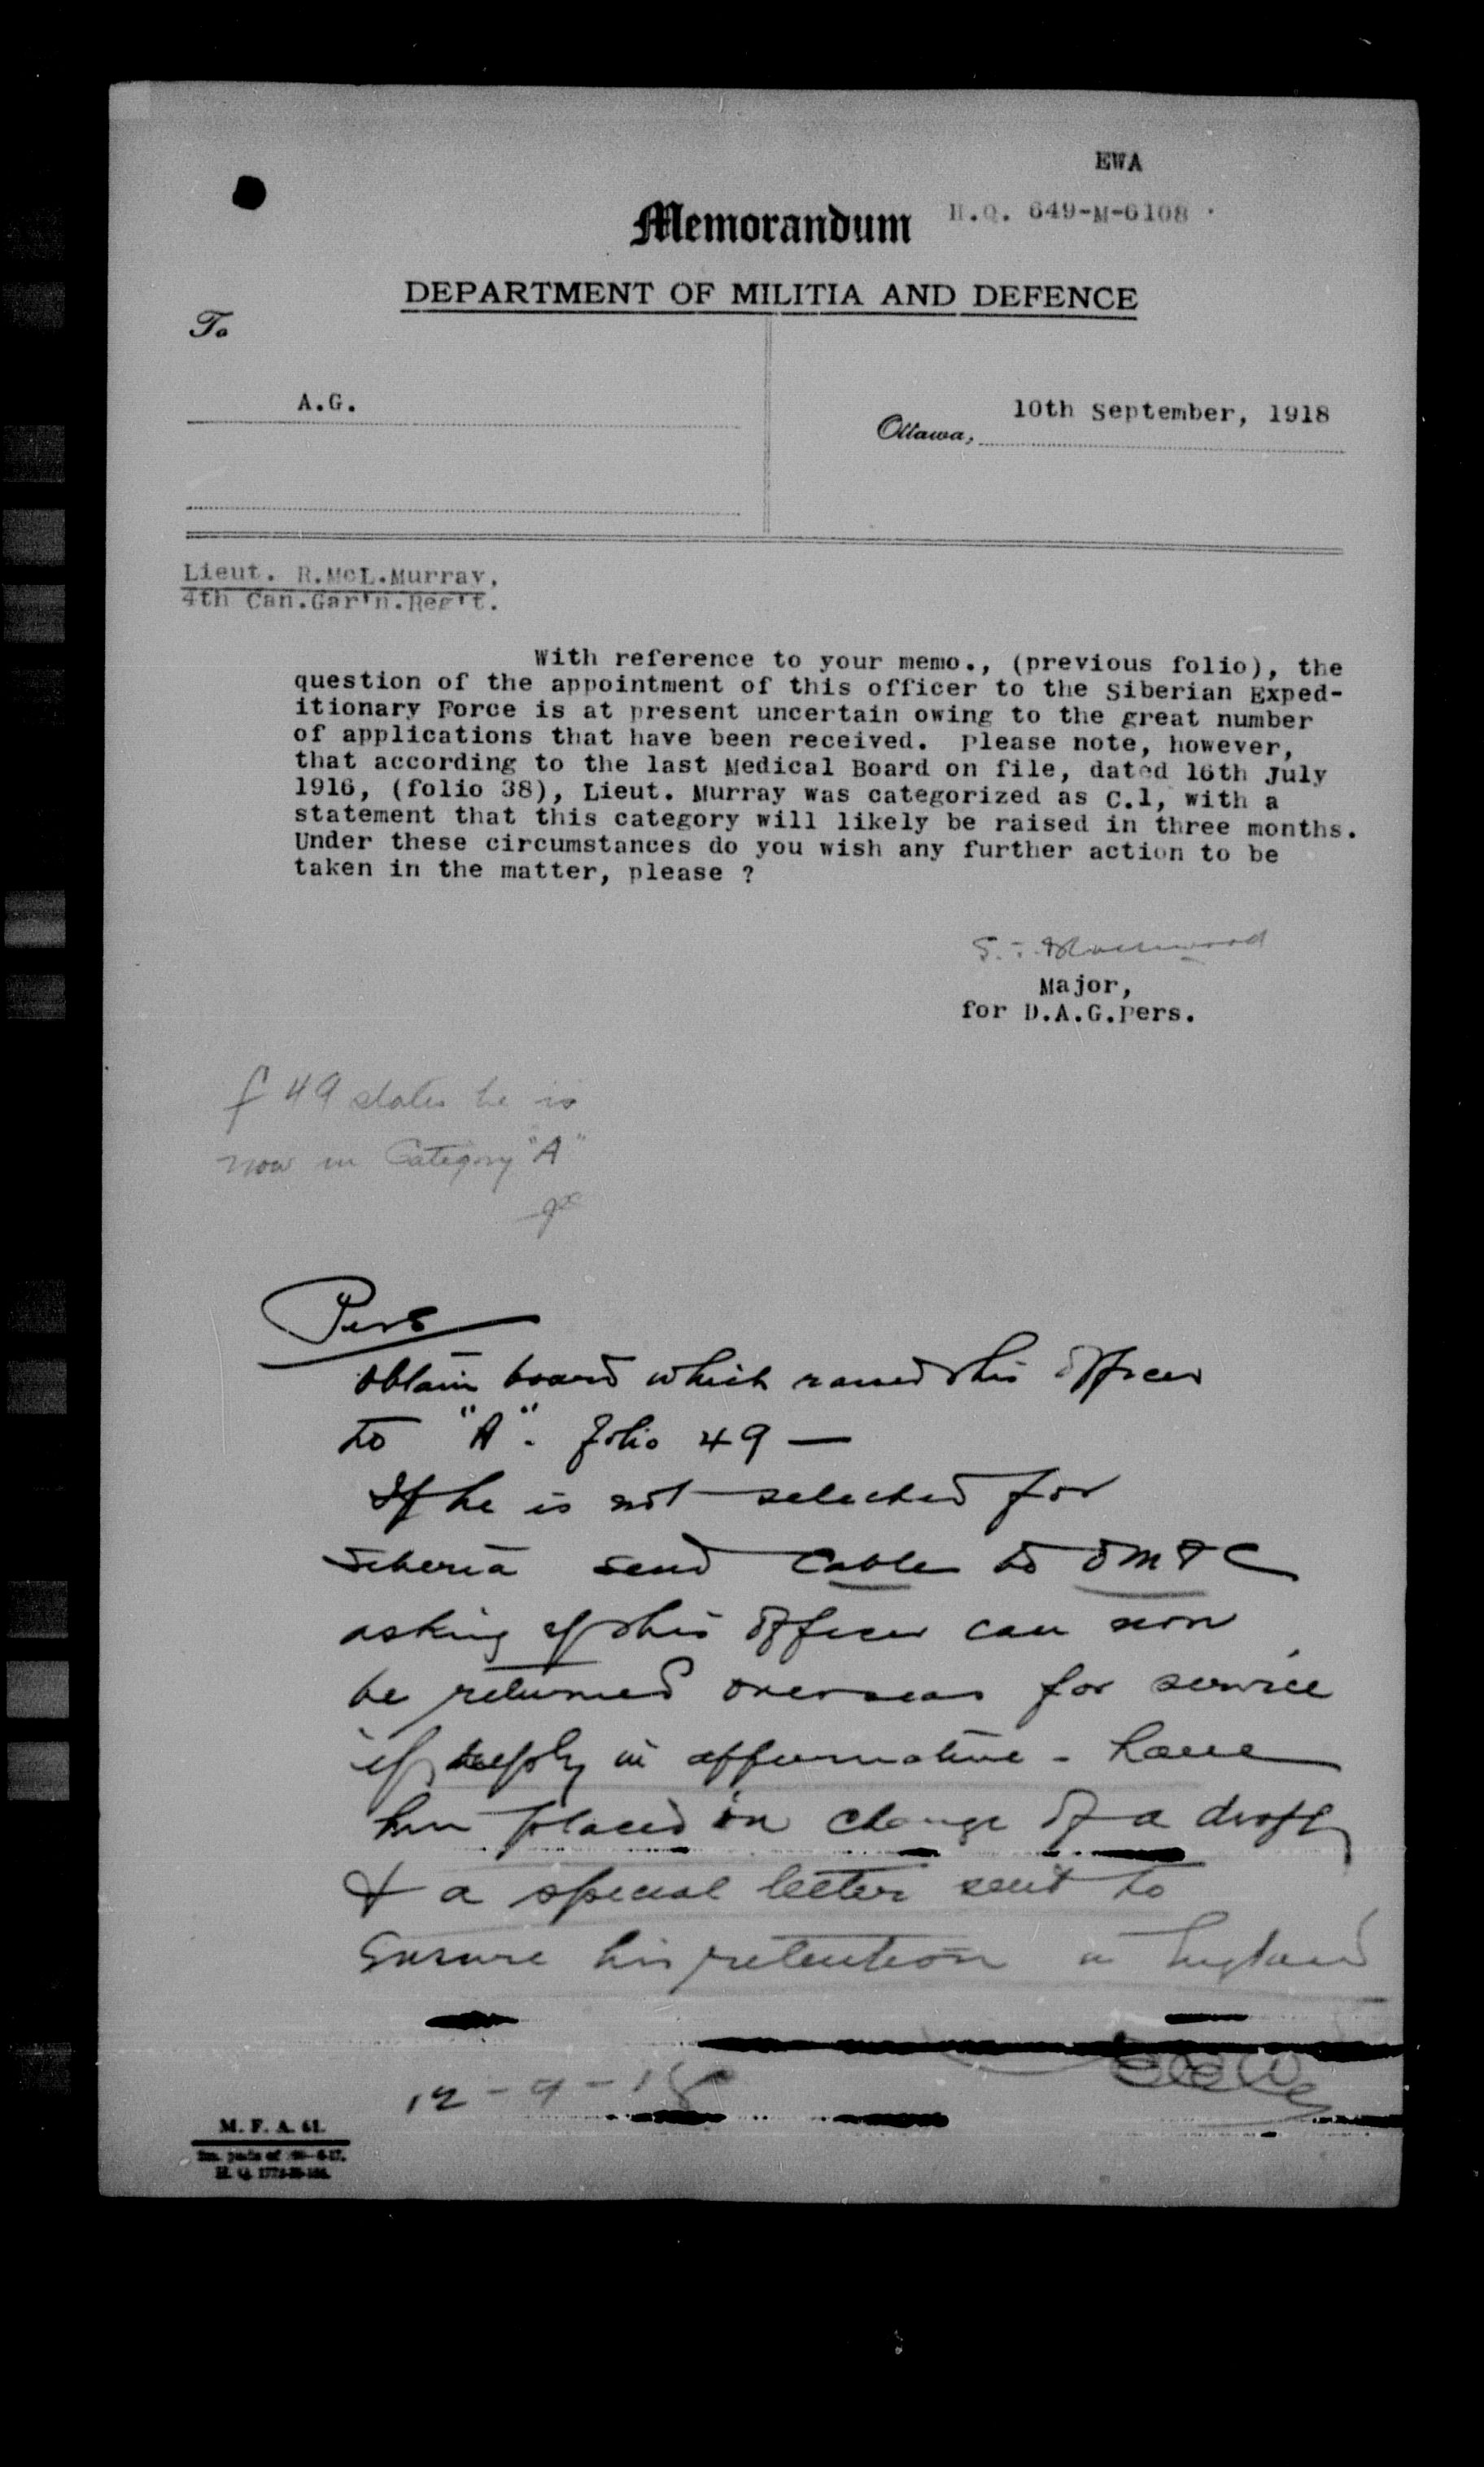 EWA
Memorandum H.Q. 649-M-6108
DEPARTMENT OF MILITIA AND DEFENCE
To
A.G.
Ottawa, 10th September, 1918
Lieut. R.McL.Murray,
4th Can.Gar'n.Reg't.
With reference to your memo., (previous folio), the
question of the appointment of this officer to the Siberian Exped-
itionary Force is at present uncertain owing to the great number
of applications that have been received. Please note, however,
that according to the last Medical Board on file, dated 16th July
1916, (folio 38), Lieut. Murray was categorized as C.1, with a
statement that this category will likely be raised in three months.
Under these circumstances do you wish any further action to be
taken in the matter, please ?
Major,
for D.A.G.Pers.
f 49 states he is
now in Category "A"
Pers
Obtain board which raised this officer
to "A". folio 49 —
If he is not selected for
Siberia send Cable to OMFC
asking if this officer can now
be returned overseas for service
if reply in affirmative - have
him placed in charge of a draft
& a special letter sent to
Ensure his retention in England
12-9-18
M. F. A. 61.